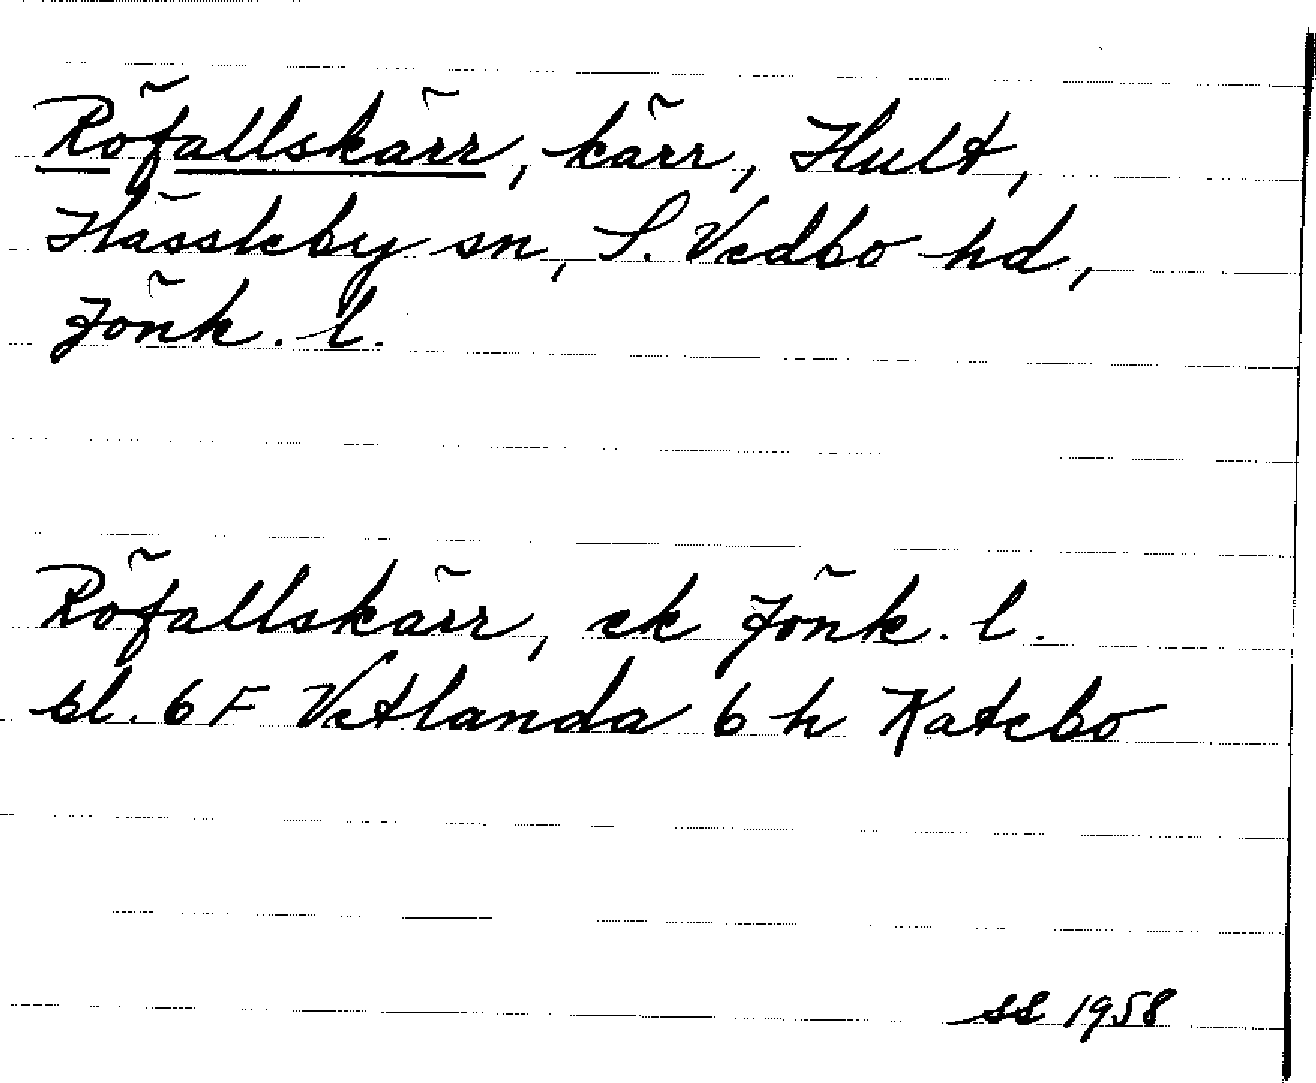 Röfallskärr, kärr, Hult,
Hässleby sn, S. Vedbo hd,
Jönk. l.
Röfallskärr, ek Jönk. l.
bl. 6 F Vetlanda 6 h Katebo
ss 1958